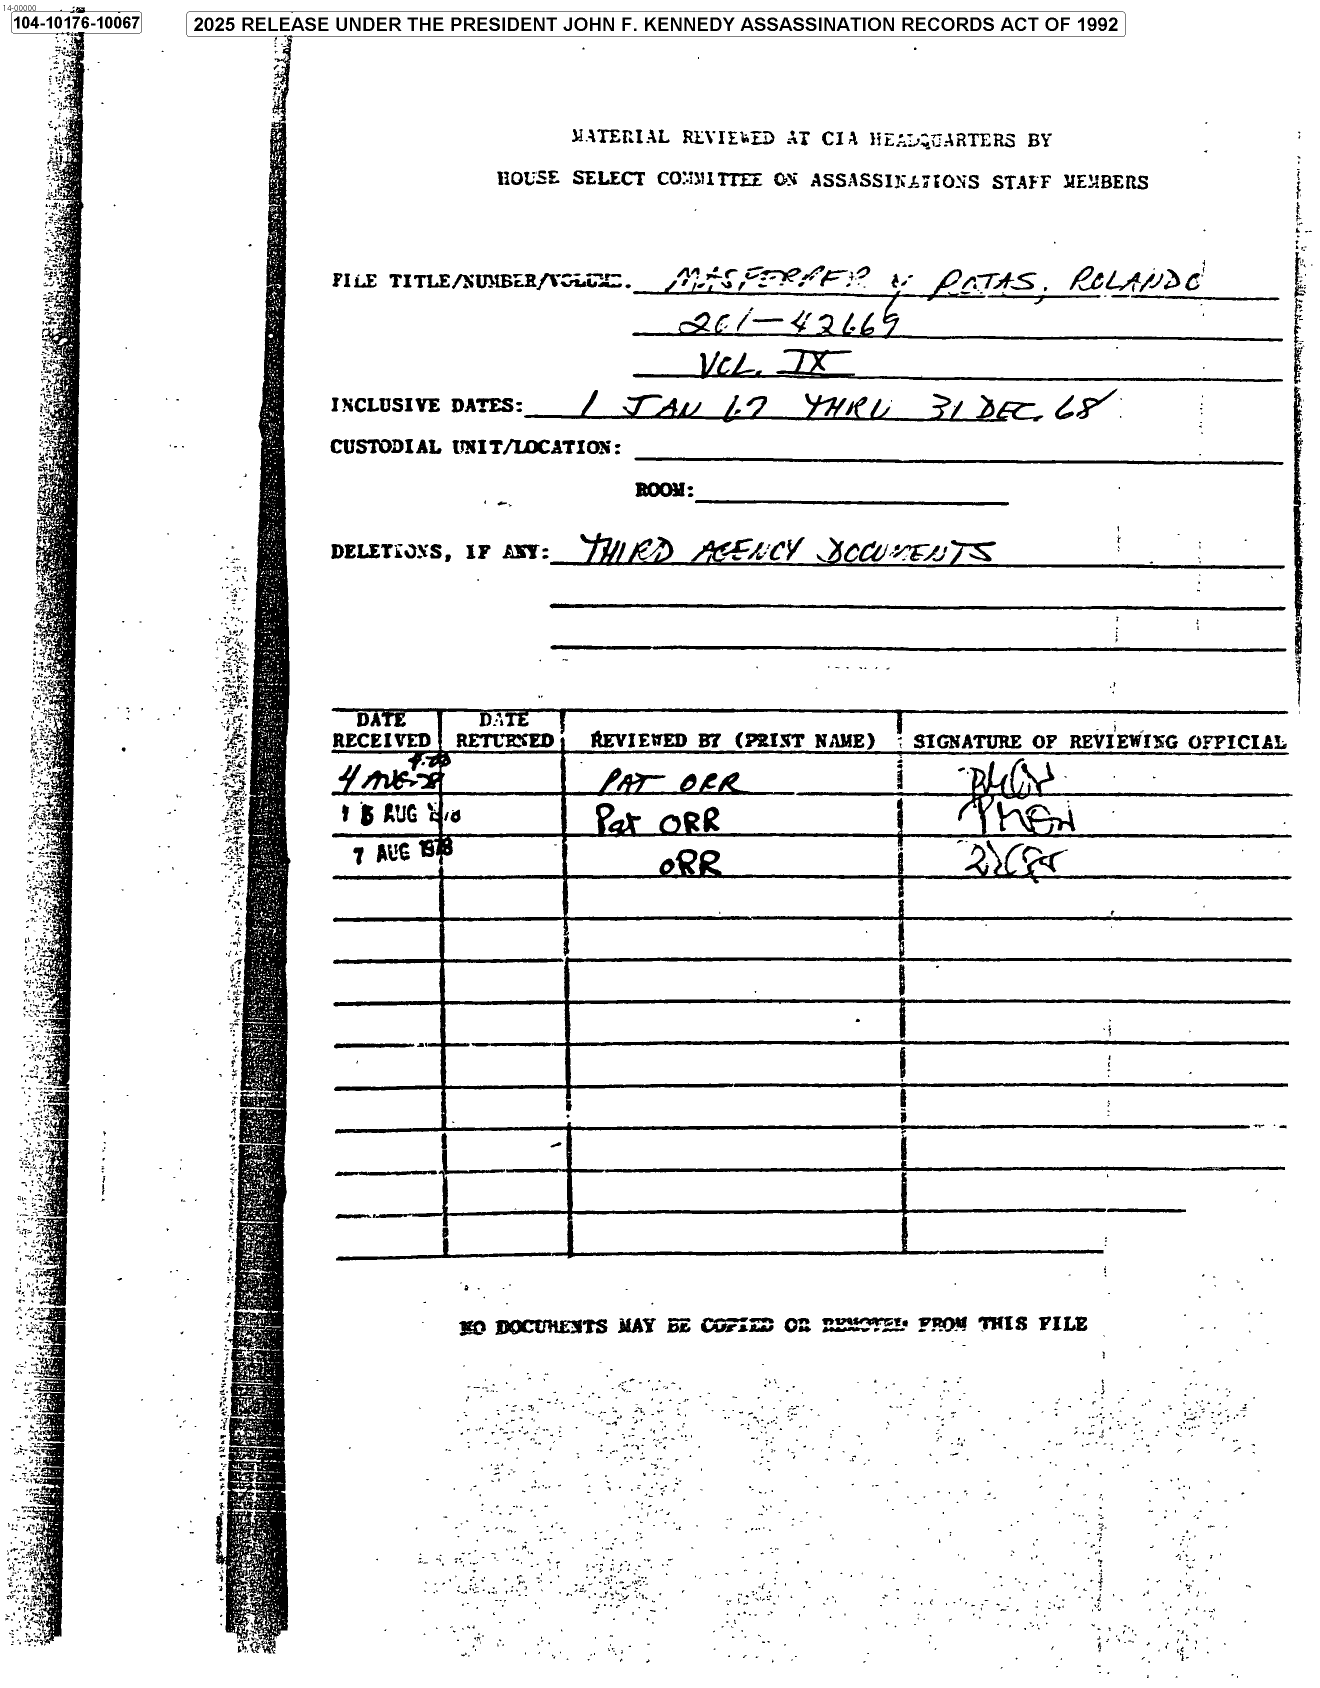 14-00000
104-10176-10067
2025 RELEASE UNDER THE PRESIDENT JOHN F. KENNEDY ASSASSINATION RECORDS ACT OF 1992
MATERIAL REVIEWED AT CIA HEADQUARTERS BY
HOUSE SELECT COMMITTEE ON ASSASSINATIONS STAFF MEMBERS
FILE TITLE/NUMBER/VOLUME: MASFERRER y ROJAS, ROLANDO
201-42669
VOL. IX
INCLUSIVE DATES: 1 JAN 67 THRU 31 DEC. 68
CUSTODIAL UNIT/LOCATION:
ROOM:
DELETIONS, IF ANY: THIRD AGENCY DOCUMENTS
DATE RECEIVED DATE RETURNED REVIEWED BY (PRINT NAME) SIGNATURE OF REVIEWING OFFICIAL
4 AUG 78 PAT ORR
15 AUG 1978 Pat ORR
7 AUG 1978 ORR
NO DOCUMENTS MAY BE COPIED OR REMOVED FROM THIS FILE